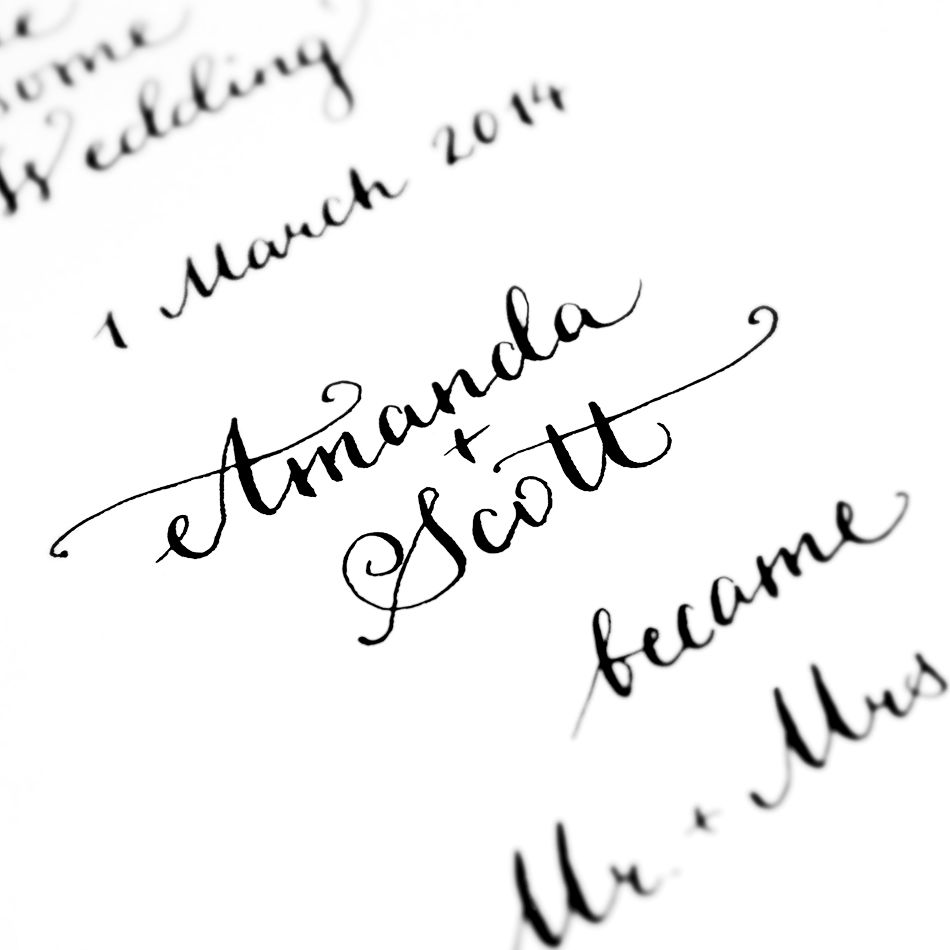 Wedding
1 March 2014
Amanda
+
Scott
became
Mr. + Mrs